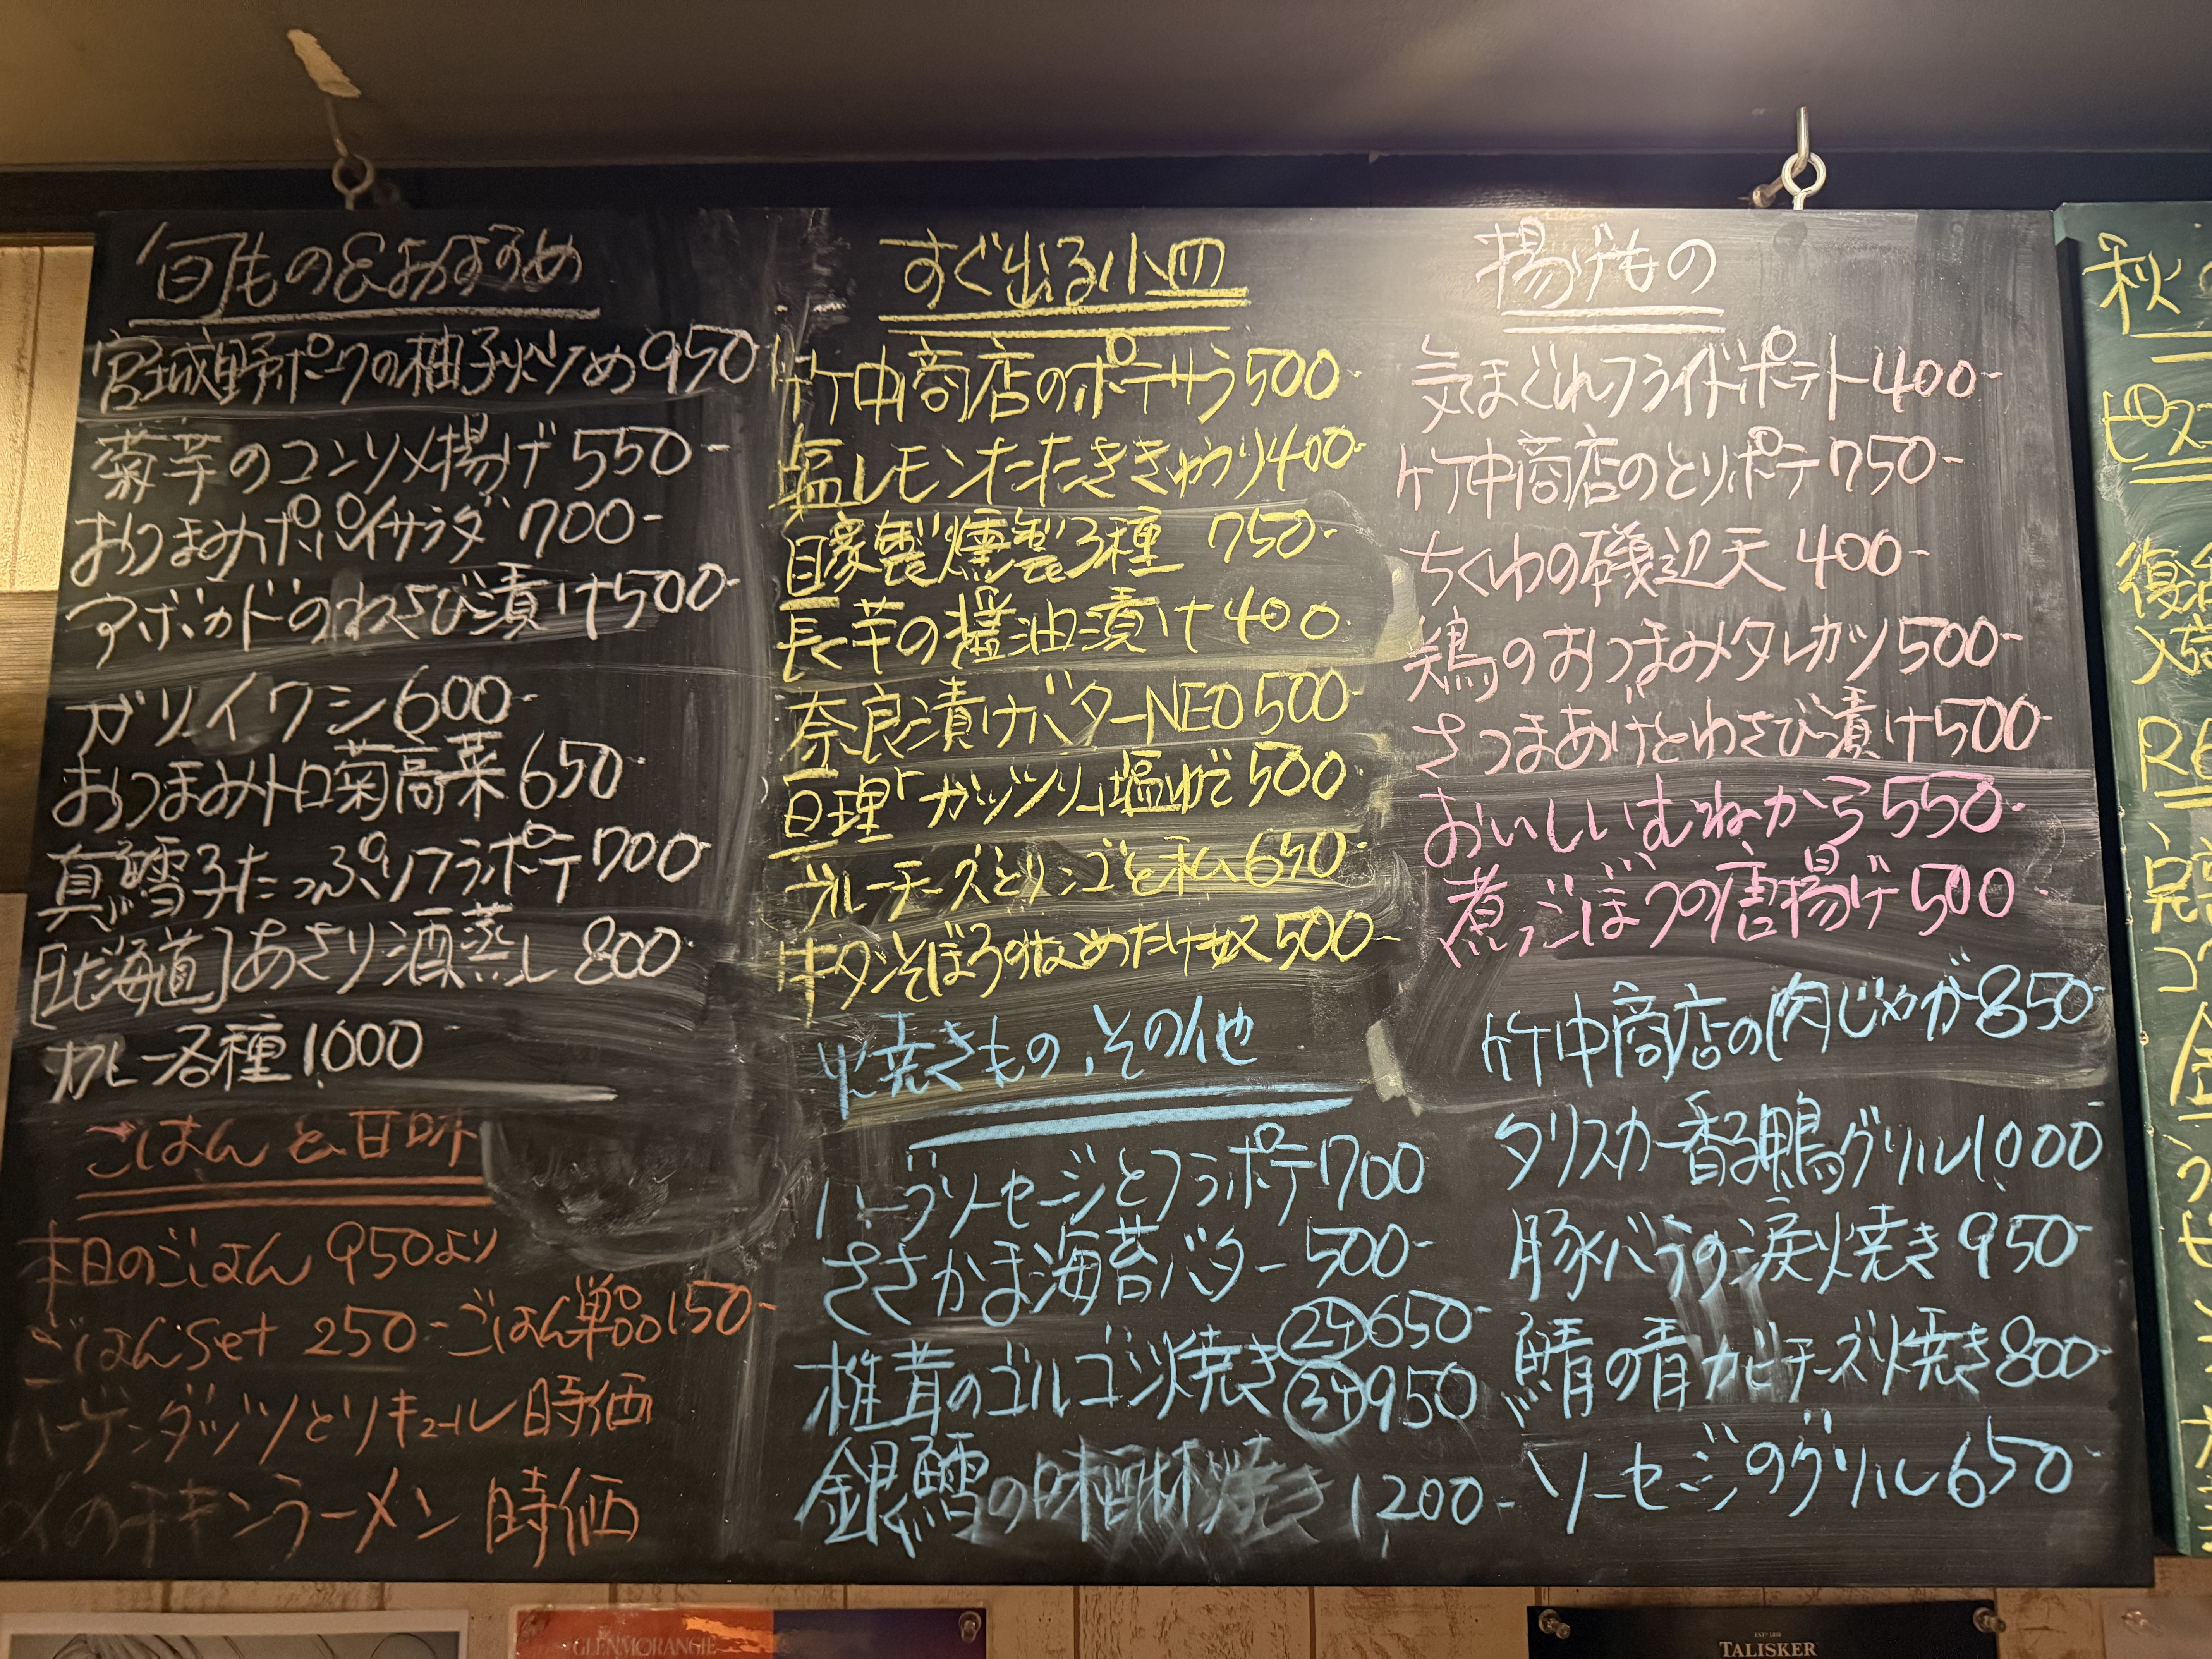 旬もの&おすすめ
宮城野ポークの柚子炒め950
菊芋のコンソメ揚げ 550-
おつまみポパイサラダ 700-
アボカドのわさび漬け500-
ガリイワシ600-
おつまみトロ菊高菜650
真鱈子たっぷりフラポテ700
[北海道]あさり酒蒸し 800
カレー各種1,000
ごはんと甘味
本日のごはん 950より
ごはんset 250-ごはん単品150-
ハーゲンダッツとリキュール時価
〆のチキンラーメン 時価
すぐ出る小皿
竹中商店のポテサラ500-
塩レモンたたききゅうり400-
自家製燻製3種 750-
長芋の醤油漬け400
奈良漬けバターNEO500-
亘理「ガッツリ」塩ゆで500
ブルーチーズとリンゴと私650-
牛タンそぼろのなめたけ奴500-
焼きもの、その他
ハーブソーセージとフラポテ700
ささかま海苔バター 500-
椎茸のゴルゴンゾ焼き
②ケ650-
③ケ950
銀鱈の味醂焼き 1200-
揚げもの
気まぐれフライドポテト400-
竹中商店のとりポテ750-
ちくわの磯辺天 400-
鶏のおつまみタレカツ500-
さつまあげとわさび漬け500-
おいしいむねから550-
煮ごぼうの唐揚げ500
竹中商店の肉じゃが850-
タリスカー香る鴨グリル1000
豚バラの涙焼き 950-
鯖の青カビチーズ焼き800-
ソーセージのグリル650-
秋
ピス
復活
入荷
完
コ
GLENMORANGIE
TALISKER